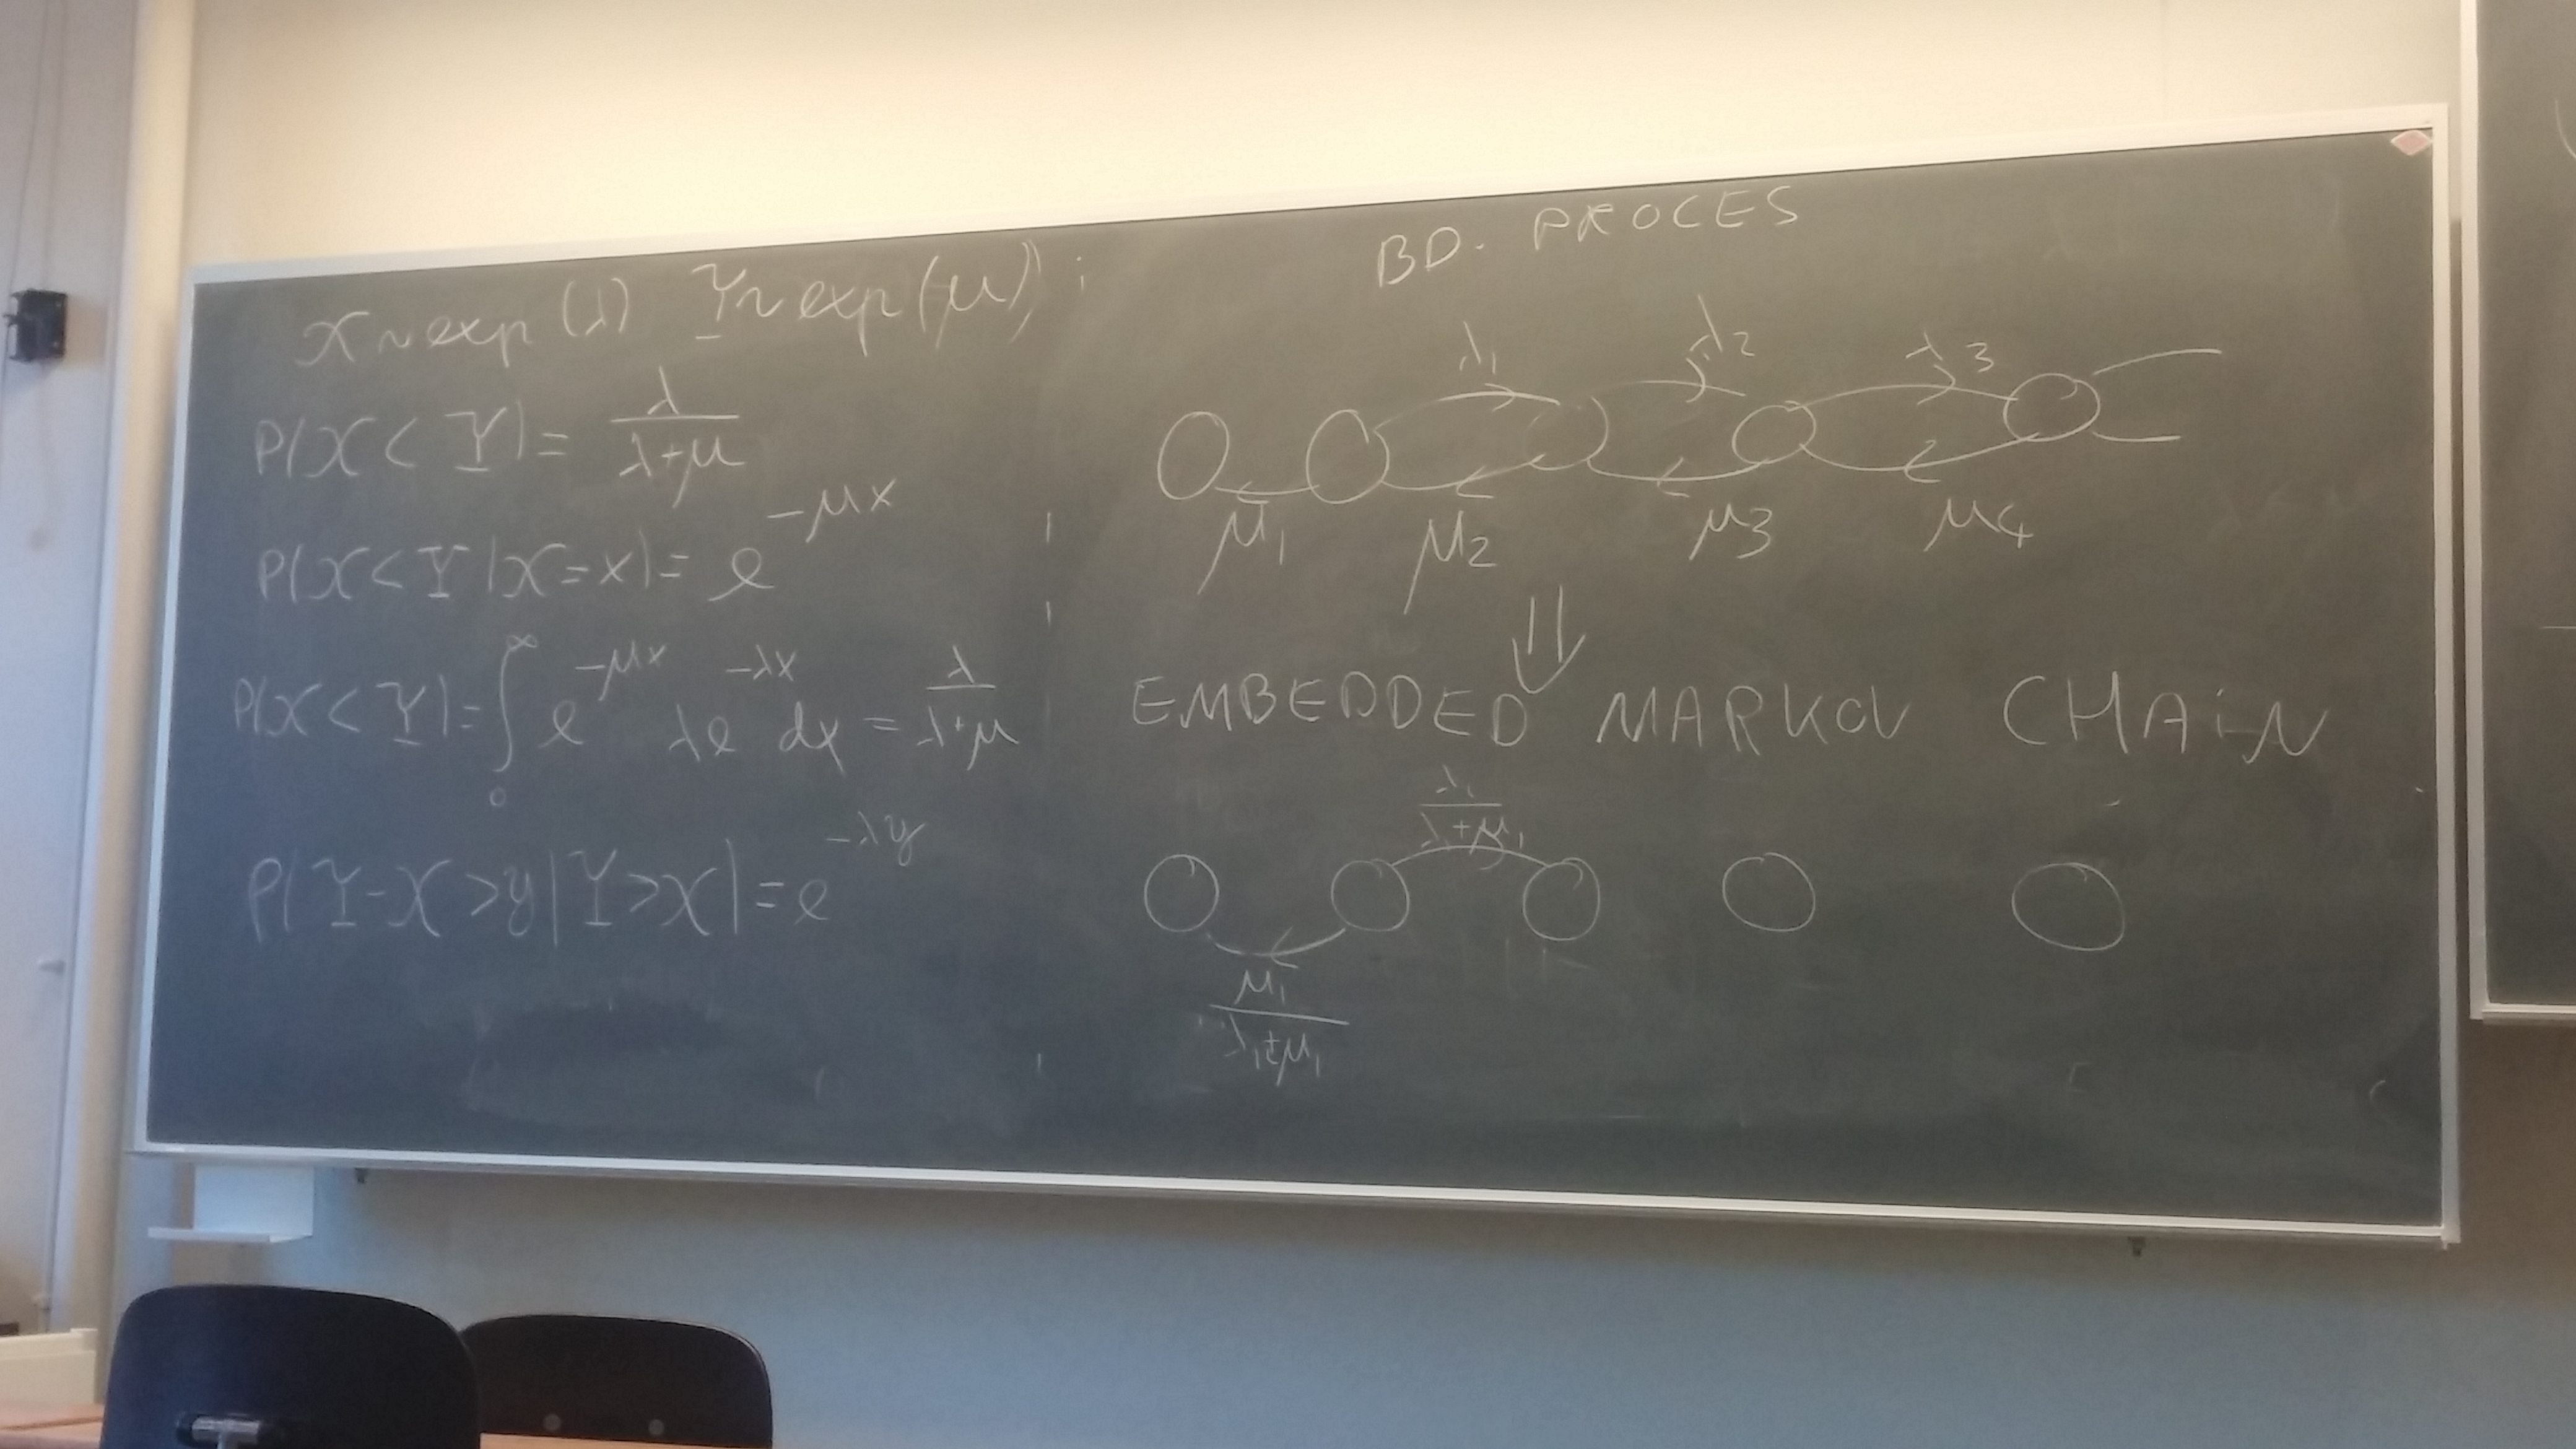 X ~ exp(λ) Y ~ exp(μ) ;
P(X < Y) = λ/(λ+μ)
P(X < Y | X = x) = e^{-μx}
P(X < Y) = ∫_0^∞ e^{-μx} λe^{-λx} dx = λ/(λ+μ)
P(Y-X > y | Y > X) = e^{-λy}
BD. PROCES
λ1 λ2 λ3
μ1 μ2 μ3 μ4
⇓
EMBEDDED MARKOV CHAiN
λ1/(λ+μ1)
μ1/(λ1+μ1)